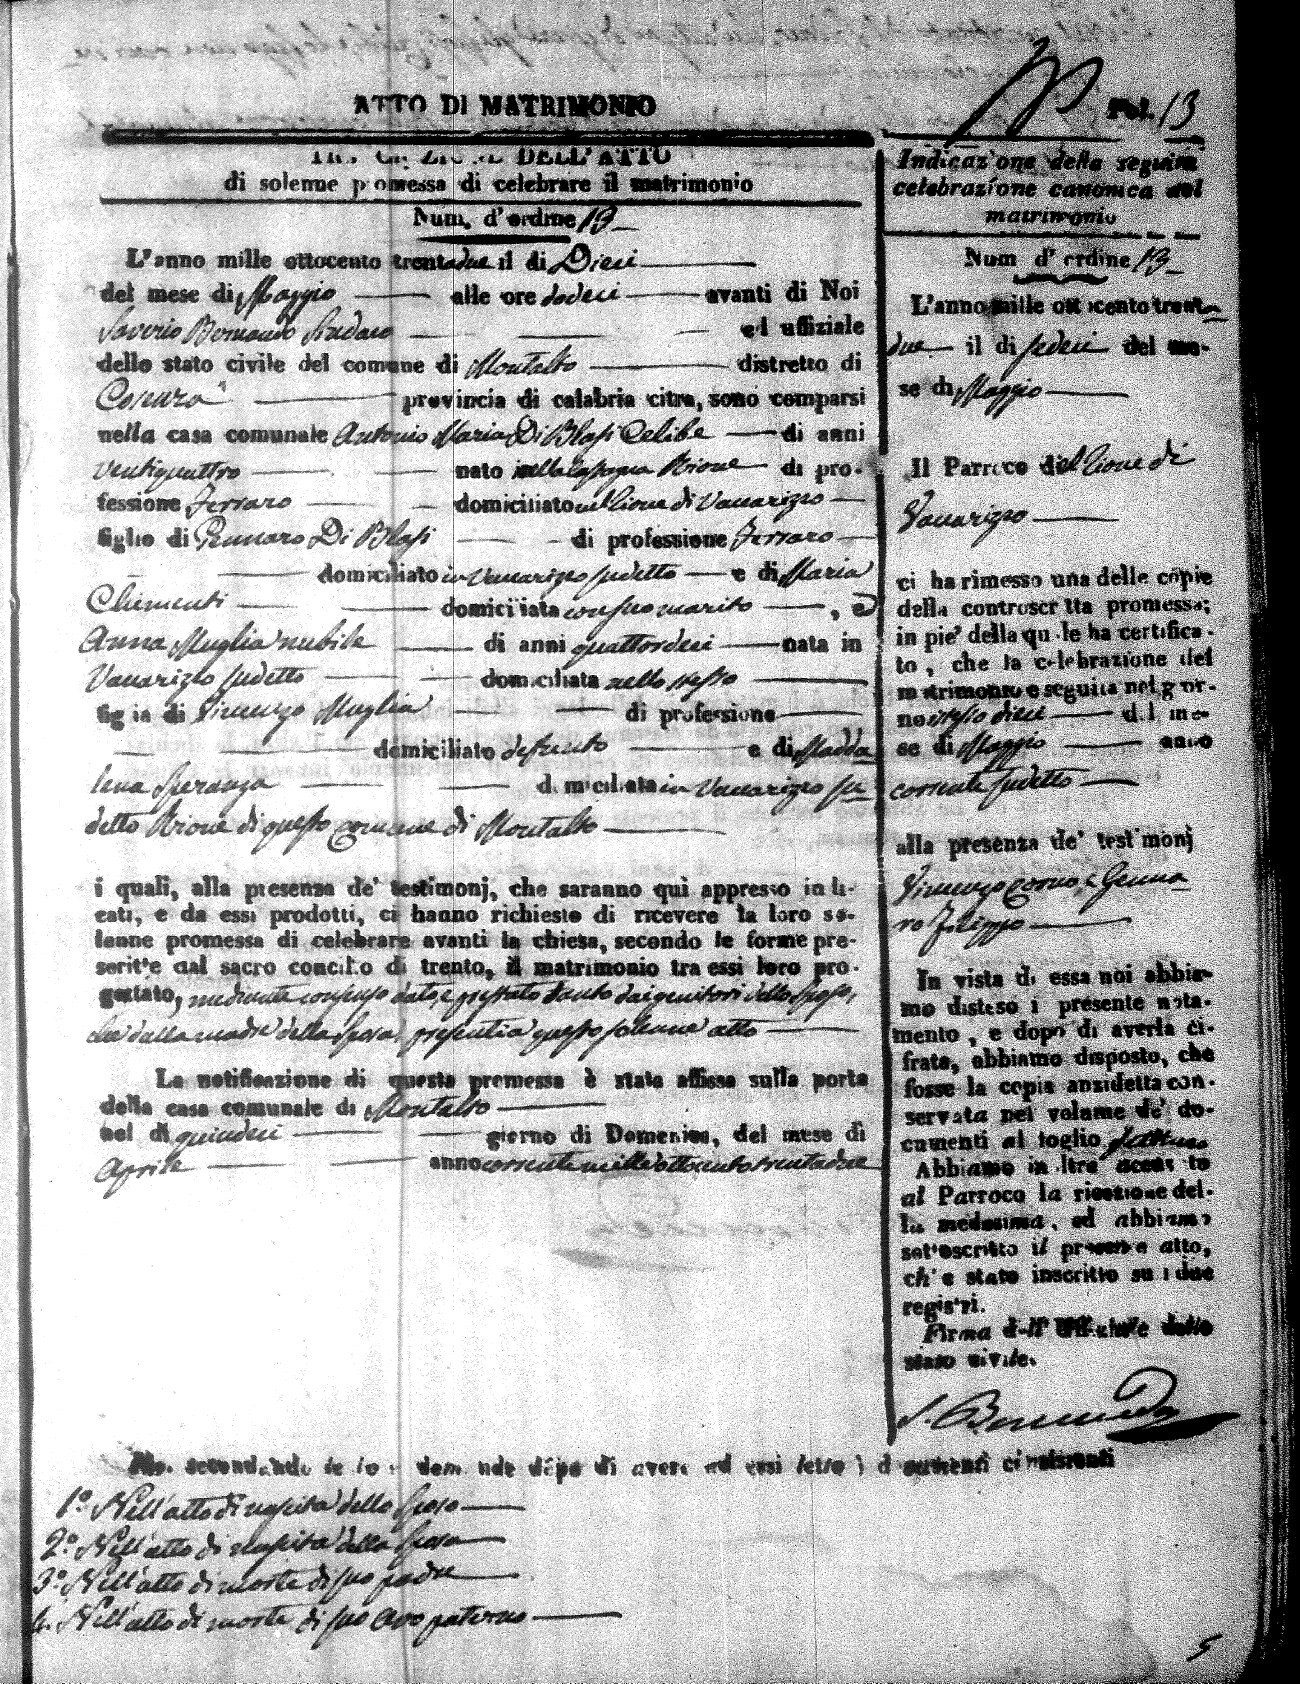 ATTO DI MATRIMONIO
Fol. 13
DELL'ATTO
di solenne promessa di celebrare il matrimonio
Num. d'ordine 13
L'anno mille ottocento trentadue il di Dieci
del mese di Maggio alle ore dodeci avanti di Noi
Saverio Sindaco ed uffiziale
dello stato civile del comune di Montalto distretto di
Cosenza provincia di calabria citra, sono comparsi
nella casa comunale Antonio Maria Di Blasi Celibe di anni
ventiquattro nato Rione di pro-
fessione Ferraro domiciliato nel Rione di Vaccarizzo
figlio di Gennaro Di Blasi di professione Ferraro
domiciliato in Vaccarizzo sudetto e di Maria
Chimenti domiciliata con suo marito, e
Anna Muglia nubile di anni quattordeci nata in
Vaccarizzo sudetto domiciliata nello stesso
figlia di Vincenzo Muglia di professione
domiciliato defunto e di Madda
lena Speranza domiciliata in Vaccarizzo su
detto Rione di questo comune di Montalto
i quali, alla presenza de' testimonj, che saranno qui appresso indi-
cati, e da essi prodotti, ci hanno richiesto di ricevere la loro so-
lenne promessa di celebrare avanti la chiesa, secondo le forme pre-
scritte dal sacro concilio di trento, il matrimonio tra essi loro pro-
gettato, mediante consenso dato, e prestato tanto dai genitori dello sposo,
che dalla madre della sposa, presenti a questo solenne atto
La notificazione di questa promessa è stata affissa sulla porta
della casa comunale di Montalto
nel di quindeci giorno di Domenica, del mese di
Aprile anno corrente mille ottocento trentadue
Noi secondando le loro domande dopo di avere ad essi letto i documenti consistenti
1º. Nell'atto di nascita dello sposo
2º. Nell'atto di nascita della sposa
3º. Nell'atto di morte di suo padre
4. Nell'atto di morte di suo avo paterno
Indicazione della seguita
celebrazione canonica del
matrimonio
Num d'ordine 13
L'anno mille ottocento trenta
due il di sedeci del me-
se di Maggio
Il Parroco del Rione di
Vaccarizzo
ci ha rimesso una delle copie
della controscritta promessa;
in pie' della quale ha certifica-
to, che la celebrazione del
matrimonio e seguita nel gior-
no istesso dieci del me-
se di Maggio anno
corrente sudetto
alla presenza de' testimonj
Vincenzo e Genna
ro Filippo
In vista di essa noi abbia-
mo disteso il presente nota-
mento, e dopo di averla ci-
frata, abbiamo disposto, che
fosse la copia anzidetta con-
servata nel volume de' do-
cumenti al foglio
Abbiamo inoltre accusato
al Parroco la ricezione del-
la medesima, ed abbiamo
sottoscritto il presente atto,
ch'e stato inscritto su i due
registri.
Firma dell'Uffiziale dello
stato civile.
5